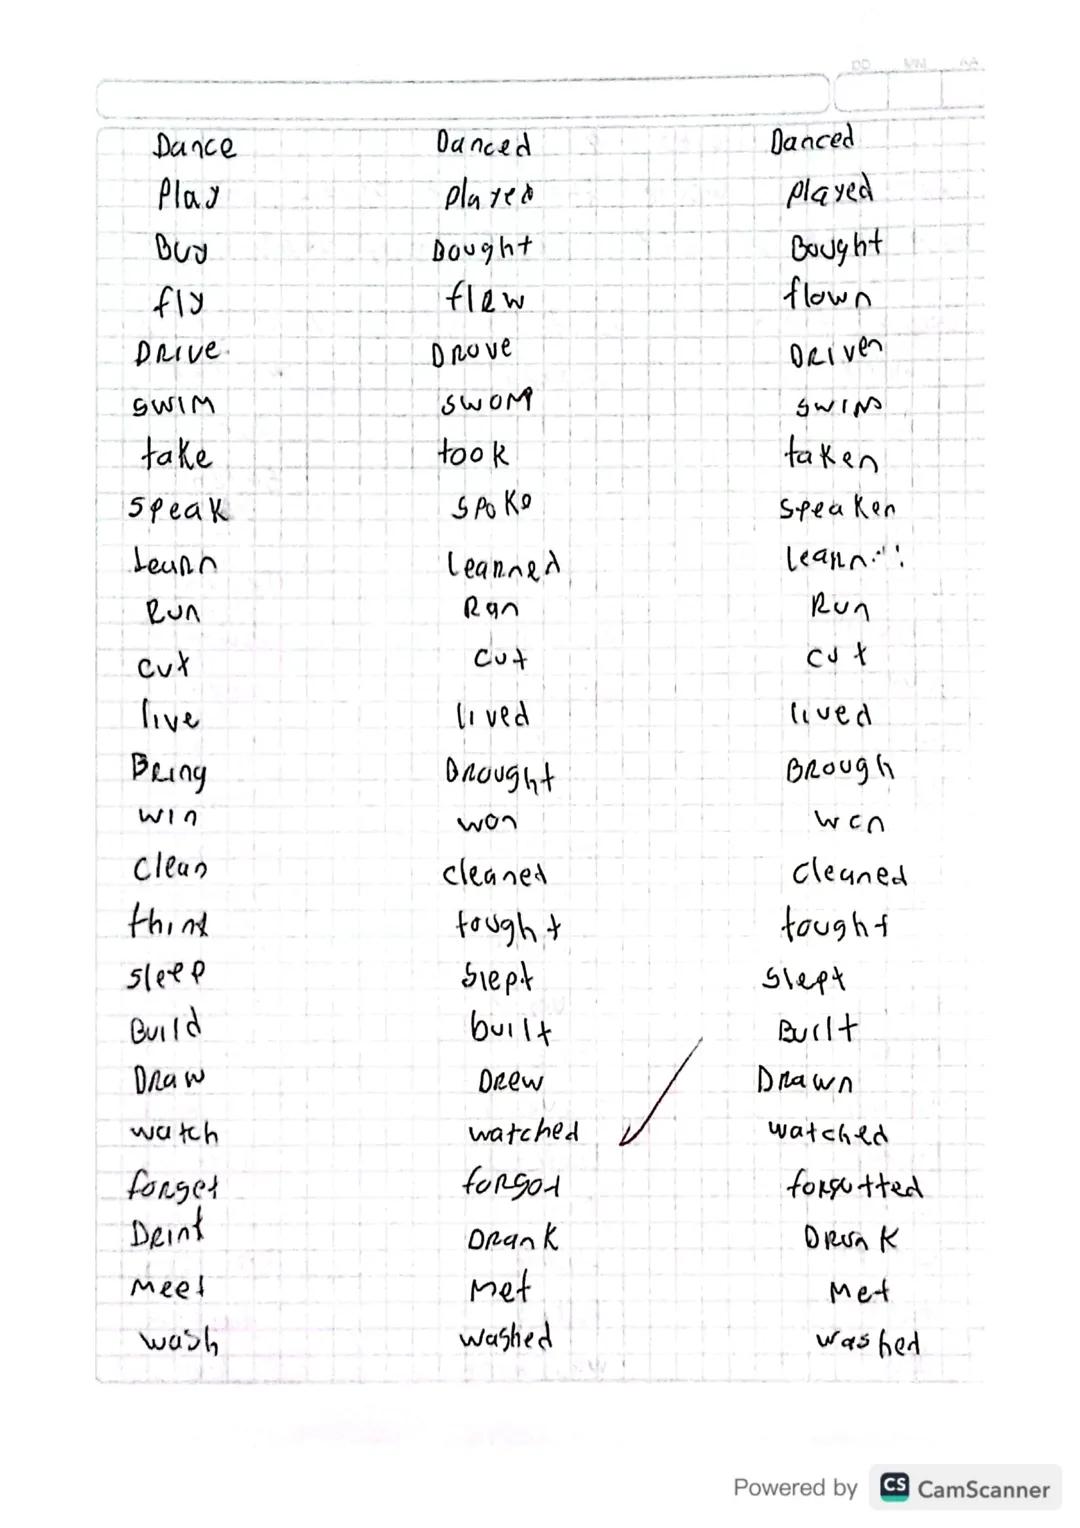 DD MM AA
Dance Danced Danced
Play played played
Buy Bought Bought
fly flew flown
DRIVE DROVE DRIVEN
SWIM SWOM
take took taken
Speak spoke Speaken
Learn Learned learn
Run Ran Run
cut cut cut
live lived lived
Bring Brought Brough
win won won
clean cleaned cleaned
tought tought
sleep slept slept
Build built Built
Draw Drew Drawn
watch watched watched
forget forgot forgotted
Drank Drunk
Meet Met Met
wash washed washed
Powered by CS CamScanner